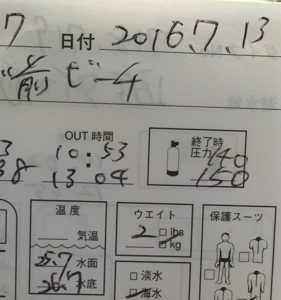 7 日付 2016.7.13
前ビーチ
OUT 時間 終了時
10:53 圧力 140
38 13 04 150
温度 ウエイト 保護スーツ
気温 2 □lbs
□kg
25.7 水面
26.7 水底 □淡水
□海水